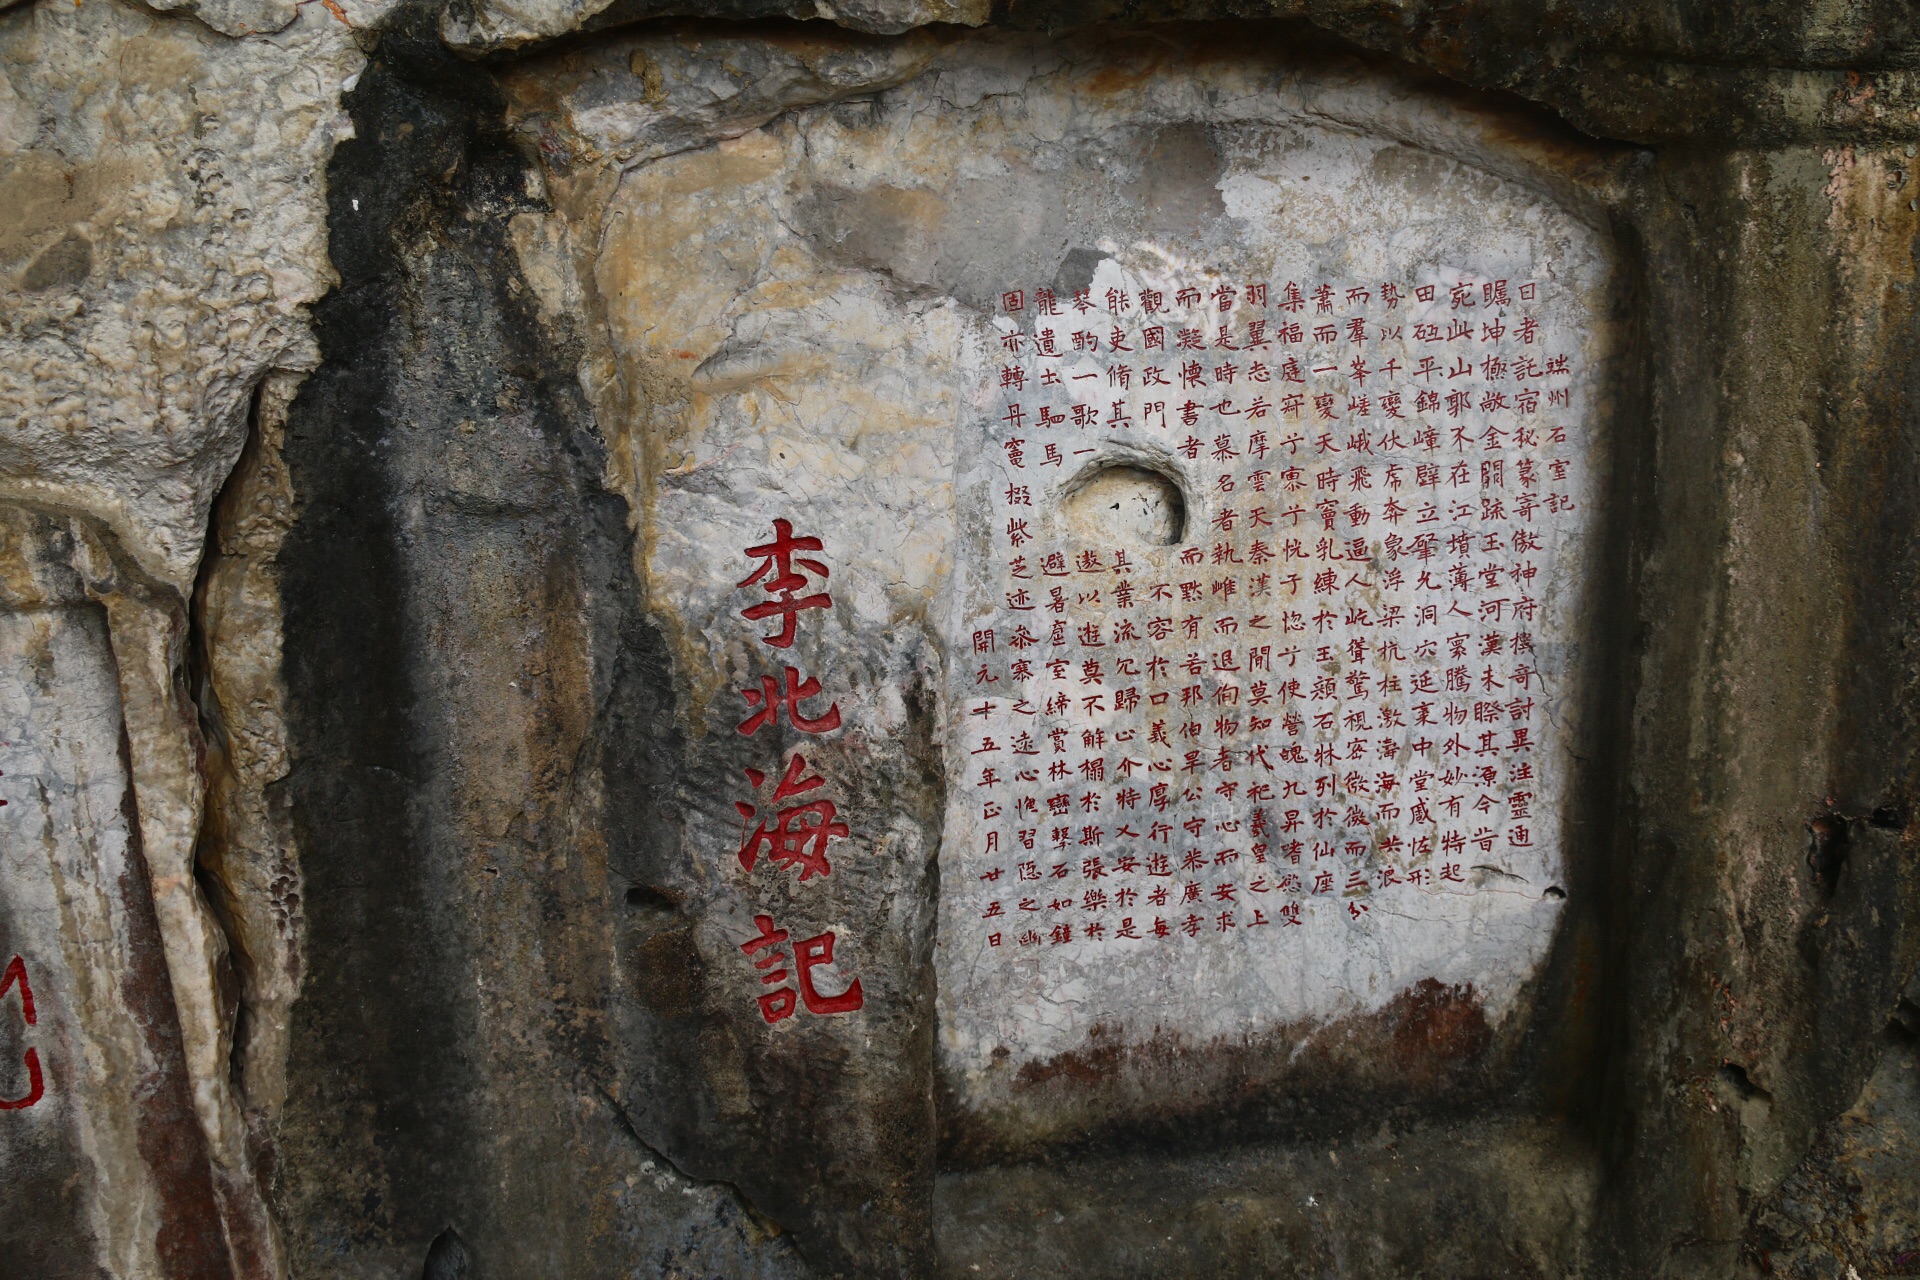 端州石室記
日者託宿秘篆寄傲神府機奇討異注靈通
矚坤極敞金閣疏玉堂河漢未睽其源今昔
宛此山郭不在江墳薄人寰騰物外妙有特起
田砥平錦嶂壁立肇允洞穴延袤中堂感怪形
勢以千變伏虎奔象浮梁杭柱激濤海而共浪
而羣峯嵯峨飛動逼人屹聳驚視密微微而三分
蕭而一變天時竇乳練於玉頟石牀列於仙座
集福庭寂兮寥兮恍兮惚兮使營魄九昇嗜慾雙
羽翼志若摩雲天秦漢之間莫知代祀羲皇之上
當是時也慕名者執雌而退徇物者守心而安求
而凝懷書者而黙有若邦伯畢公守恭廣孝
觀國政門不容於口義心厚行遊者每
能吏脩其其業流冗歸心介特人安於是
琴酌一歌一遨以遊莫不解榻於斯張樂於
龍遺士駟馬避暑窟室締賞林巒擊石如鐘
固亦轉丹竈掇紫芝迹叅寥之遠心憔習隱之幽
開元十五年正月廿五日
李北海記